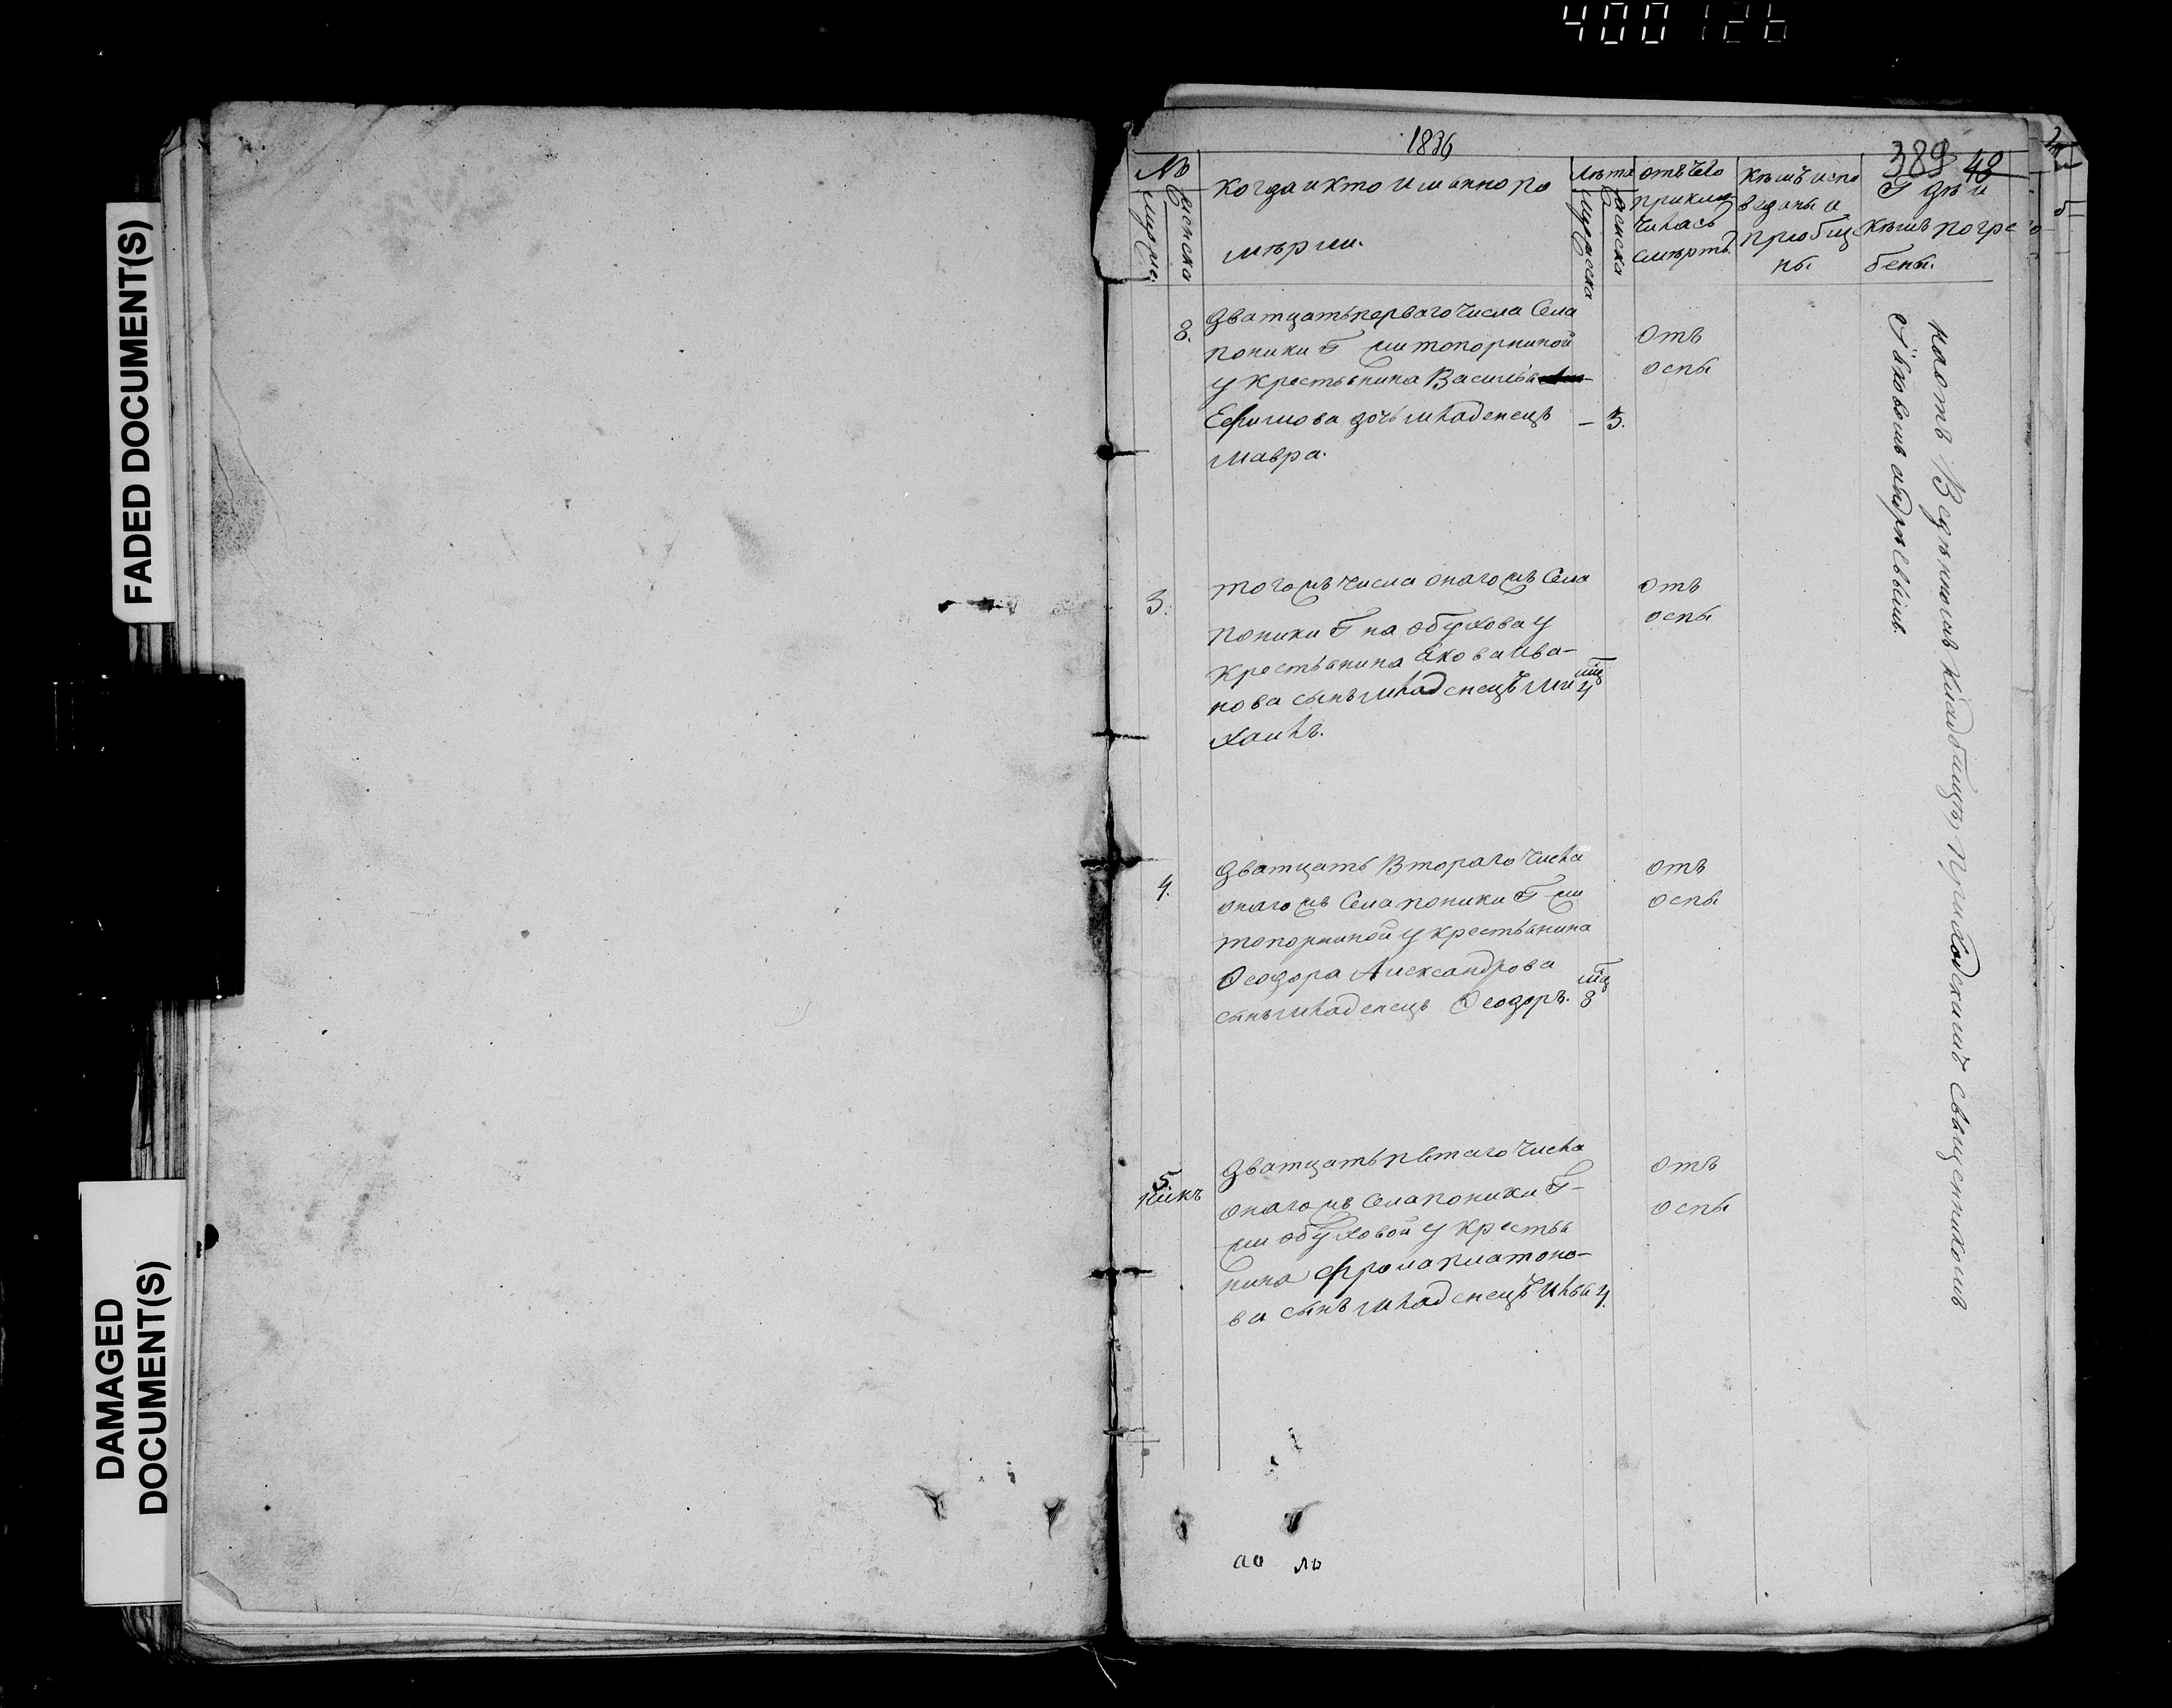 400126
FADED DOCUMENT(S)
DAMAGED
DOCUMENT(S)
1836
389 48
№
когда и кто имянно по
мѣрли.
Лѣта
отъ чего
приклю
чилась
смерть
кѣмъ испо
вѣданы и
приобще
ны
Гдѣ и
кѣмъ погре
бены.
8.
дватцать перваго числа Села
поники Г жи топорниной
у крестьянина Василья
Ефимова дочь младенецъ
мавра.
3.
отъ
оспы
3.
того жъ числа онаго жъ Села
поники Г на обухова у
крестьянина Якова Ива-
нова сынъ младенецъ Ми
хаилъ.
4
отъ
оспы
4.
дватцать Втораго числа
онаго жъ Села поники Г жи
топорниной у крестьянина
Ѳеодора Александрова
сынъ младенецъ Ѳеодоръ.
8
отъ
оспы
5.
дватцать пятаго числа
онаго жъ Села поники Г-
жи обуховой у крестья
нина Фрола платоно-
ва сынъ младенецъ Илья
4.
отъ
оспы
на отъ Веденномъ кладбищѣ, Приходскимъ священникомъ
Іяковомъ андреевымъ.